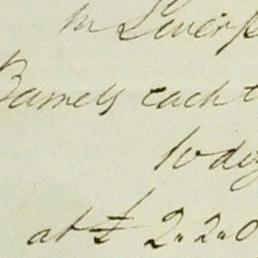 in Liverp
Barrels each t
10 day
at £ 2.2.0